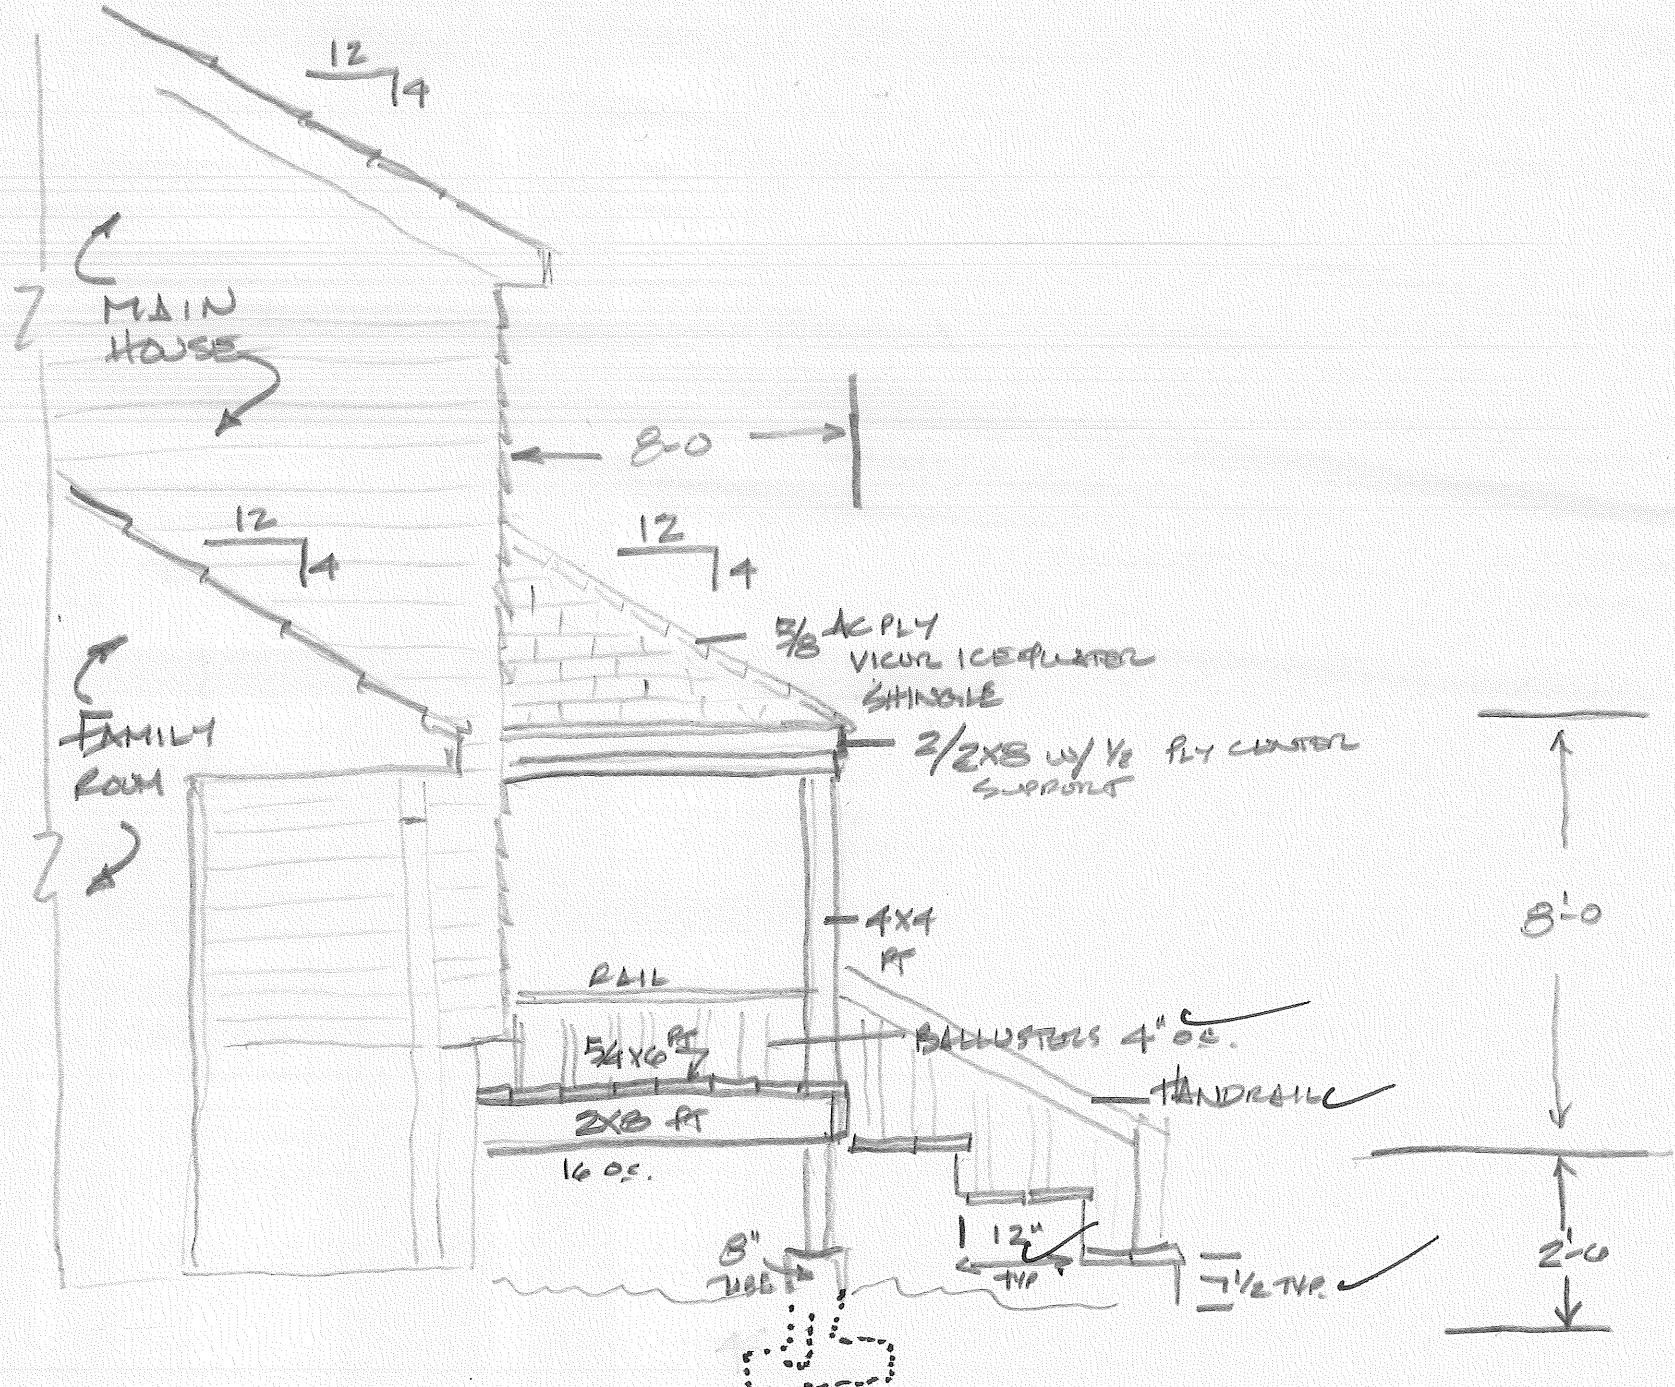 12
4
MAIN
HOUSE
8-0
12
4
12
4
5/8 AC PLY
VICUR ICE & WATER
SHINGLE
FAMILY
ROOM
2/2X8 W/ 1/2 PLY CENTER
SUPPORT
8'-0
4X4
PT
RAIL
BALLUSTERS 4" OC.
5/4X6 PT
HANDRAIL
2X8 PT
16 OC.
8"
TUBE
12"
TYP
7 1/2 TYP.
2'-6